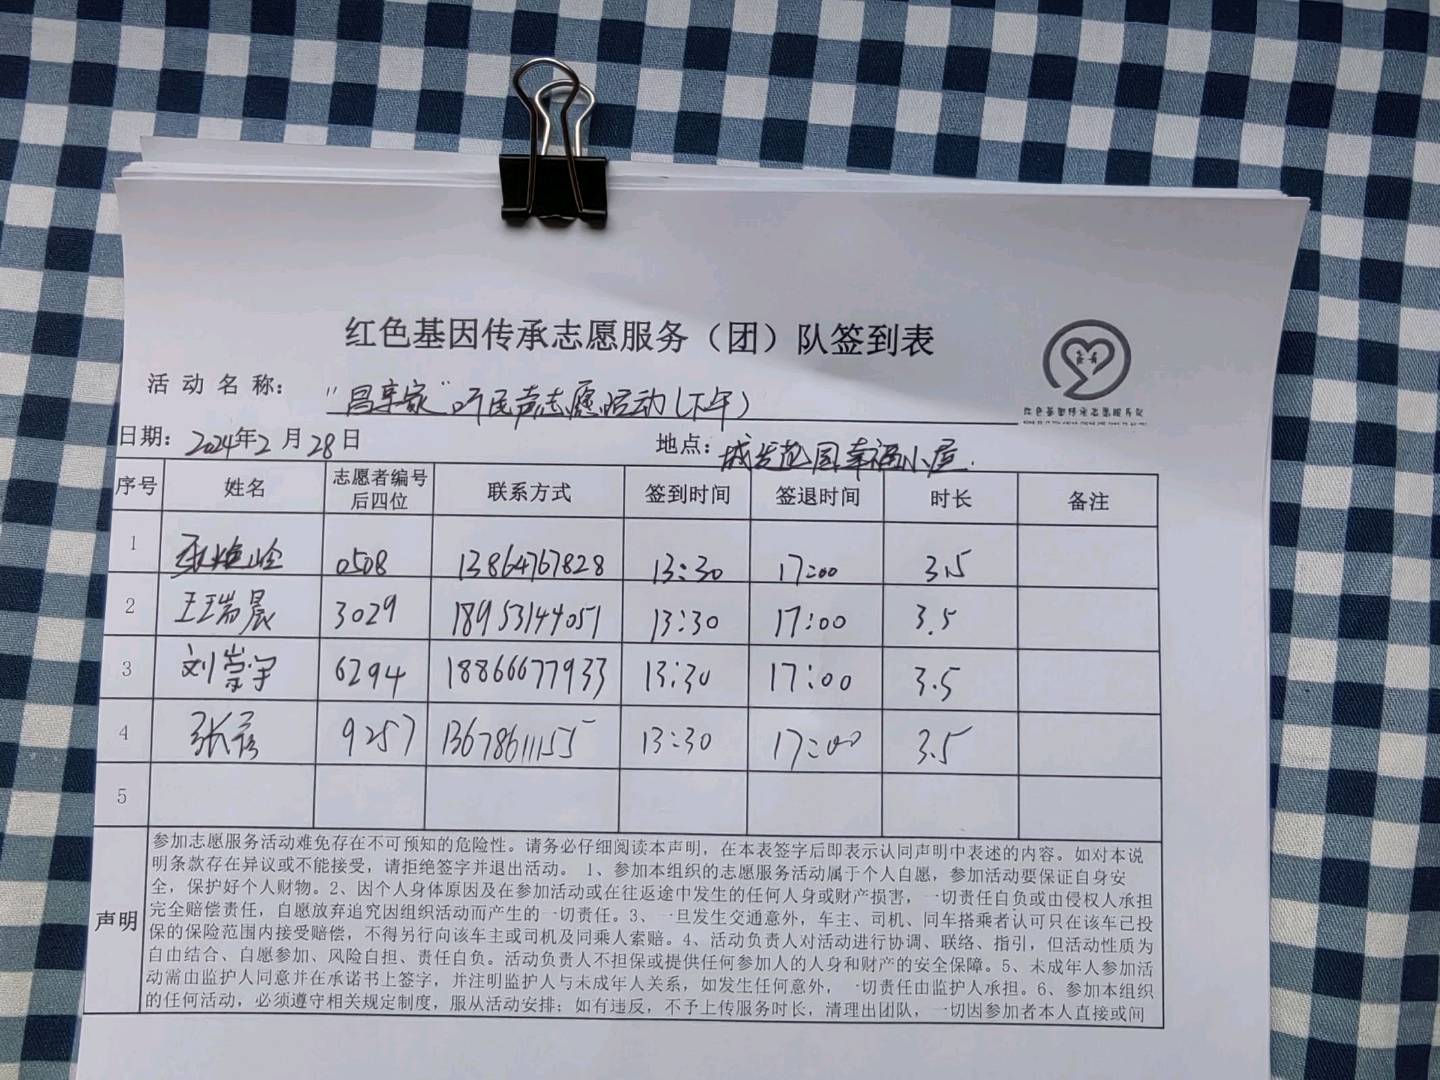 红色基因传承志愿服务（团）队签到表
活动名称： “昌享家”听民声志愿活动（下午）
日期： 2024年2月28日 地点： 城发花园幸福小屋.
序号 姓名 志愿者编号后四位 联系方式 签到时间 签退时间 时长 备注
1 0508 13864767828 13:30 17:00 3.5
2 王瑞晨 3029 18953144051 13:30 17:00 3.5
3 刘崇宇 6294 18866677933 13:30 17:00 3.5
4 张 9257 13678611155 13:30 17:00 3.5
5
声明
参加志愿服务活动难免存在不可预知的危险性。请务必仔细阅读本声明，在本表签字后即表示认同声明中表述的内容。如对本说
明条款存在异议或不能接受，请拒绝签字并退出活动。 1、参加本组织的志愿服务活动属于个人自愿，参加活动要保证自身安
全，保护好个人财物。2、因个人身体原因及在参加活动或在往返途中发生的任何人身或财产损害，一切责任自负或由侵权人承担
完全赔偿责任，自愿放弃追究因组织活动而产生的一切责任。3、一旦发生交通意外，车主、司机、同车搭乘者认可只在该车已投
保的保险范围内接受赔偿，不得另行向该车主或司机及同乘人索赔。4、活动负责人对活动进行协调、联络、指引，但活动性质为
自由结合、自愿参加、风险自担、责任自负。活动负责人不担保或提供任何参加人的人身和财产的安全保障。5、未成年人参加活
动需由监护人同意并在承诺书上签字，并注明监护人与未成年人关系，如发生任何意外，一切责任由监护人承担。6、参加本组织
的任何活动，必须遵守相关规定制度，服从活动安排；如有违反，不予上传服务时长，清理出团队，一切因参加者本人直接或间